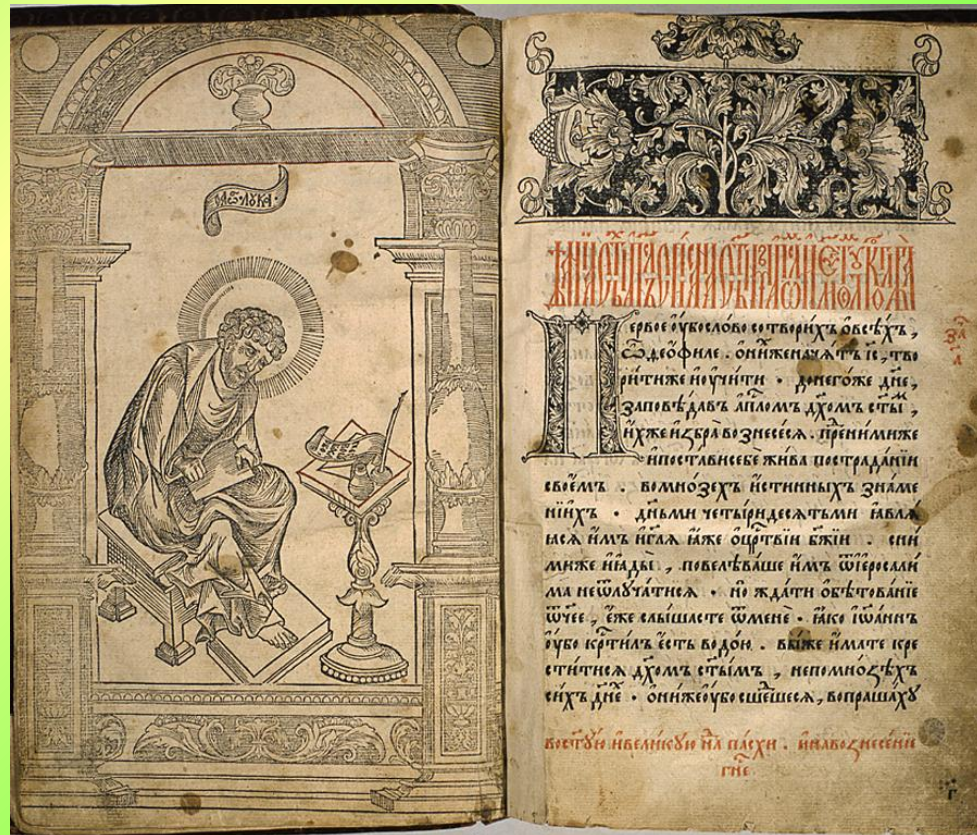 лꙋка
Первое ѹ҆бо слово сотворихъ ѡ҆ всѣхъ,
ѽ ѳеѻ҆филе. ѻ҆ нихже начѧтъ і҃с, тво
рити же и҆ ѹ҆чити. до негоже дн҃е,
заповѣдавъ а҆пⷭ҇ломъ дх҃омъ ст҃ыⷨ,
и҆хже и҆збра вознесесѧ. пред ними же
и҆ постави себе жива по страданїи
своемъ. во мнозехъ и҆стинныхъ знаме
нїихъ. дн҃ьми четыридесѧтьми ꙗ҆влѧ
ꙗсѧ и҆мъ и҆ гл҃ѧ ꙗ҆же ѡ҆ црⷭ҇твїи бж҃їи. с ни
ми же и҆ ꙗ҆ды, повелѣваше и҆мъ ѿ і҆еросали
ма не ѿлꙋчатисѧ. но ждати ѡ҆бѣтованїе
ѿч҃ее, е҆же слышасте ѿ мене. ꙗ҆ко і҆ѡ҆аннъ
ѹ҆бо крⷭ҇тилъ е҆сть водою. вы же и҆мате кре
ститисѧ дх҃омъ ст҃ымъ, не по мноѕѣхъ
сихъ дн҃е. ѻ҆ни же ѹ҆бо сшеⷣшесѧ, вопрашахꙋ
во ст҃ꙋю и҆ великꙋю нлⷧ҇ѧ пасхи. и҆ на вознесенїе
гн҃е